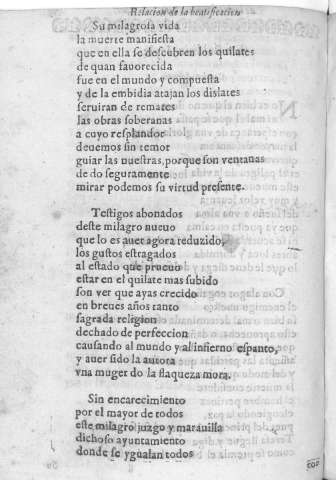 Relacion de la beatificacion
Su milagrosa vida
la muerte manifiesta
que en ella se descubren los quilates
de quan fauorecida
fue en el mundo y compuesta
y de la embidia atajan los dislates
seruiran de remates
las obras soberanas
a cuyo resplandor
deuemos sin temor
guiar las nuestras, porque son ventanas
de do seguramente
mirar podemos su virtud presente.
Testigos abonados
deste milagro nueuo
que lo es auer agora reduzido,
los gustos estragados
al estado que prueuo
estar en el quilate mas subido
son ver que ayas crecido
en breues años tanto
sagrada religion
dechado de perfeccion
causando al mundo y al infierno espanto,
y auer sido la autora
vna muger do la flaqueza mora.
Sin encarecimiento
por el mayor de todos
este milagro juzgo y marauilla
dichoso ayuntamiento
donde se ygualan todos